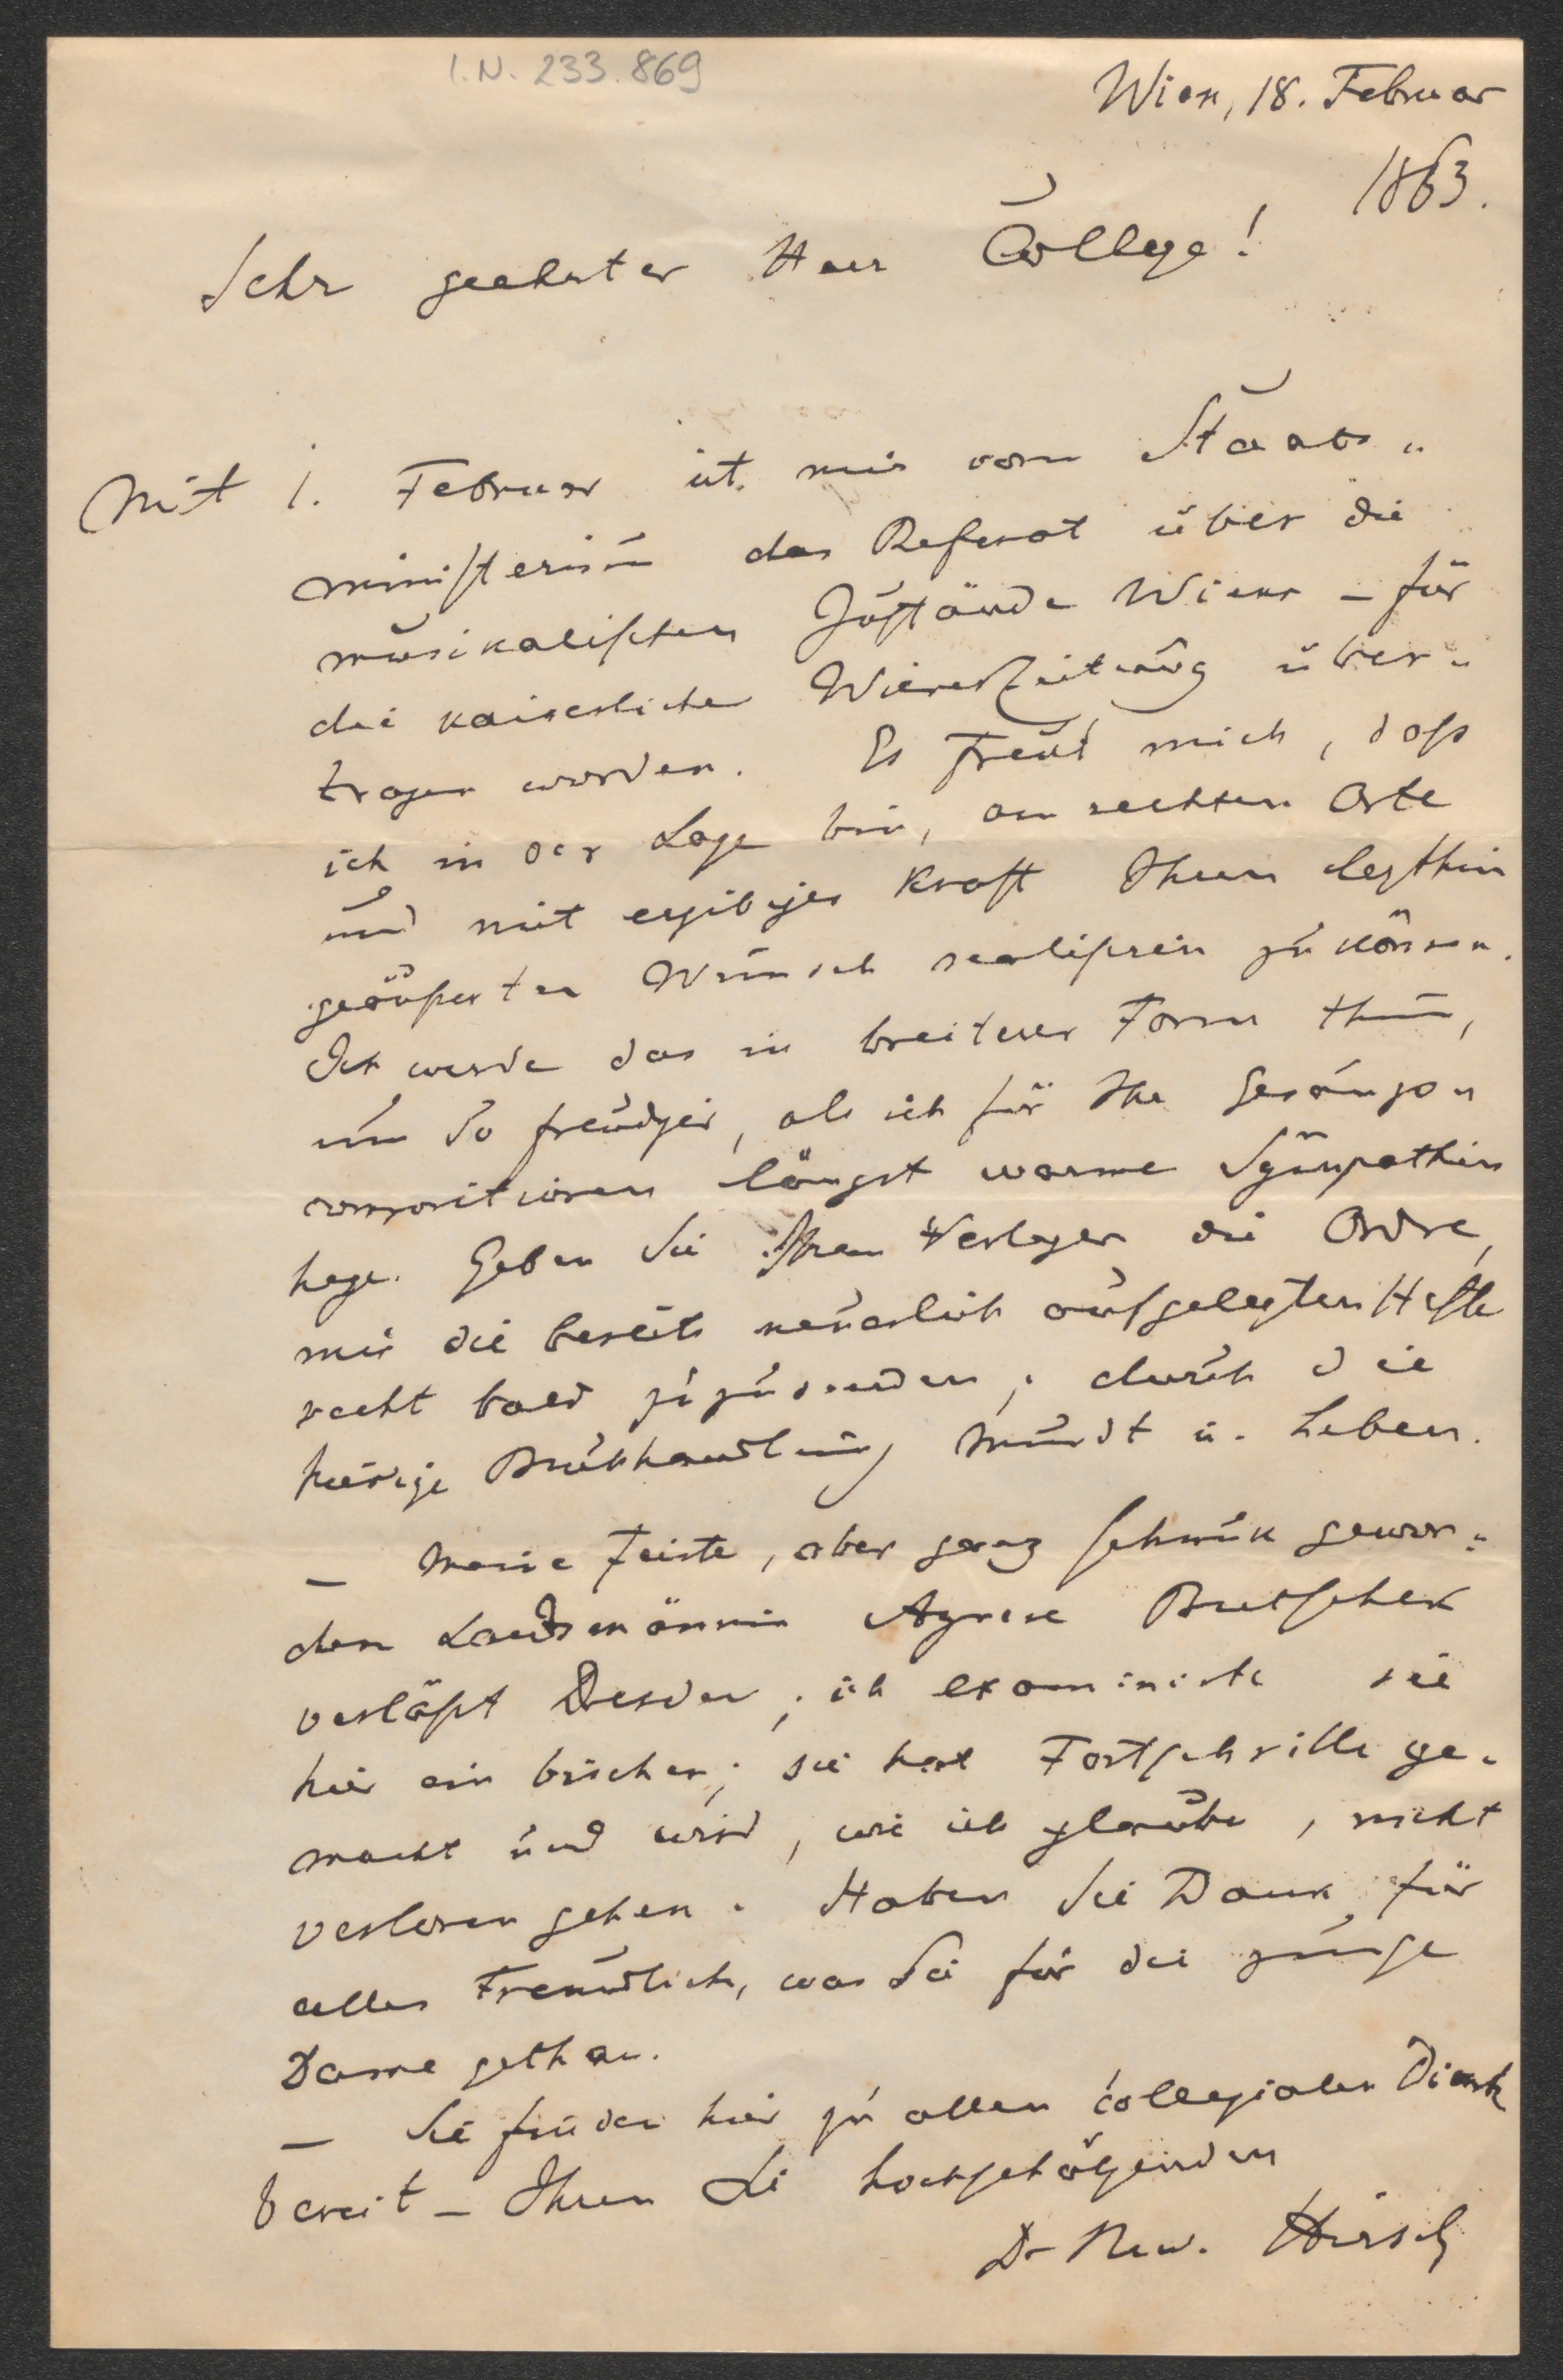 I.N. 233.869
Wien, 18. Februar
1863.
Sehr geehrter Herr College!
Mit 1. Februar ist mir vom Staats-
ministerium das Referat über die
musikalischen Zustände Wiens – für
die kaiserliche Wiener Zeitung über-
tragen worden. Es freut mich, daß
ich in der Lage bin, am rechten Orte
und mit ergibiger Kraft Ihren letzthin
geäußerten Wunsch realisiren zu können.
Ich werde das in breiterer Form thun,
um so freudiger, als ich für Ihre Gesangs-
compositionen längst warme Sympathien
hege. Geben Sie Ihrem Verleger die Ordre,
mir die bereits neuerlich aufgelegten Hefte
recht bald zuzusenden; durch die
hiesige Buchhandlung
– Meine feiste, aber ganz schmuk gewor-
dene Landsmännin Agnese Butschek
verläßt Dresden; ich examinirte sie
hier ein bischen; sie hat Fortschritte ge-
macht und wird, wie ich glaube, nicht
verloren gehen. Haben Sie Dank für
alles Freundliche, was Sie für die junge
Dame gethan.
– Sie finden hier zu allen collegialen Dienste
bereit – Ihren Sie hochschätzenden
Dr Hirsch